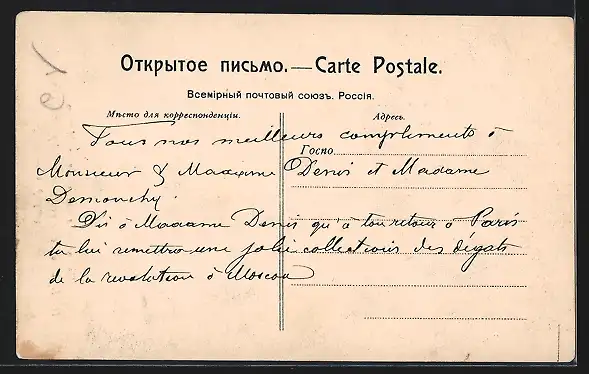 Открытое письмо.—Carte Postale.
Всемірный почтовый союзъ. Россія.
Мѣсто для корреспонденціи.
Адресъ.
Tous nos meilleurs compliments à
Госпо
Monsieur & Madame Denis et Madame
Demouchy.
Dis à Madame Denis qu'à ton retour à Paris
tu lui remettra une jolie collections des dégats
de la revolution à Moscou